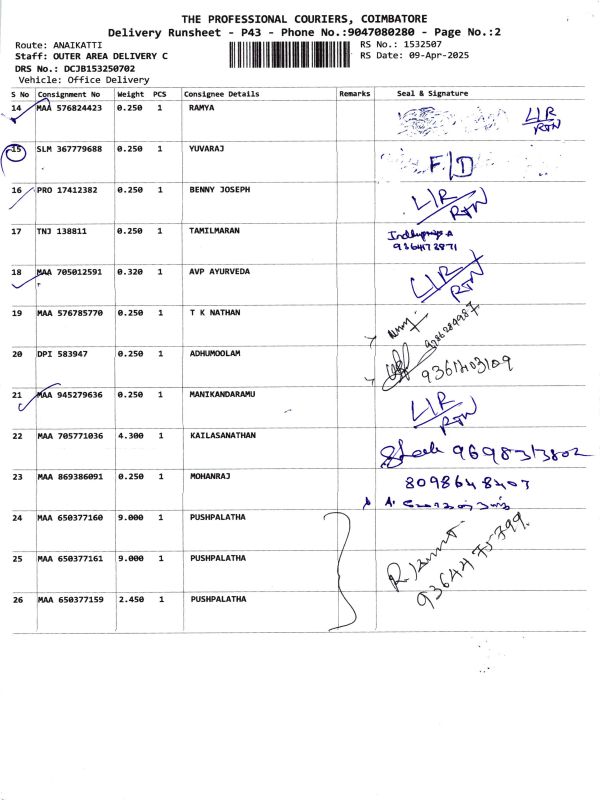 THE PROFESSIONAL COURIERS, COIMBATORE
Delivery Runsheet - P43 - Phone No.:9047080280 - Page No.:2
Route: ANAIKATTI
RS No.: 1532507
Staff: OUTER AREA DELIVERY C
RS Date: 09-Apr-2025
DRS No.: DCJB153250702
Vehicle: Office Delivery
S No Consignment No Weight PCS Consignee Details Remarks Seal & Signature
14 MAA 576824423 0.250 1 RAMYA L/R RTN
15 SLM 367779688 0.250 1 YUVARAJ F/D
16 PRO 17412382 0.250 1 BENNY JOSEPH L/R RTN
17 TNJ 138811 0.250 1 TAMILMARAN
18 MAA 705012591 0.320 1 AVP AYURVEDA L/R RTN
19 MAA 576785770 0.250 1 T K NATHAN
20 DPI 583947 0.250 1 ADHUMOOLAM
21 MAA 945279636 0.250 1 MANIKANDARAMU L/R RTN
22 MAA 705771036 4.300 1 KAILASANATHAN 9698313802
23 MAA 869386091 0.250 1 MOHANRAJ 8098648407
24 MAA 650377160 9.000 1 PUSHPALATHA
25 MAA 650377161 9.000 1 PUSHPALATHA
26 MAA 650377159 2.450 1 PUSHPALATHA